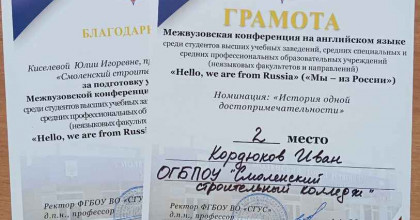 БЛАГОДАР
Киселевой Юлии Игоревне, пр
«Смоленский строите
за подготовку у
Межвузовской конферен
среди студентов высших учебных за
средних профессиональных об
(неязыковых факуль
«Hello, we are from Russ
Ректор ФГБОУ ВО «СГУС»
д.п.н., профессор
ГРАМОТА
Межвузовская конференция на английском языке
среди студентов высших учебных заведений, средних специальных и
средних профессиональных образовательных учреждений
(неязыковых факультетов и направлений)
«Hello, we are from Russia» («Мы – из России»)
Номинация: «История одной
достопримечательности»
2 место
Кордюков Иван
ОГБПОУ "Смоленский
строительный колледж"
Ректор ФГБОУ ВО «СГУС»
д.п.н., профессор